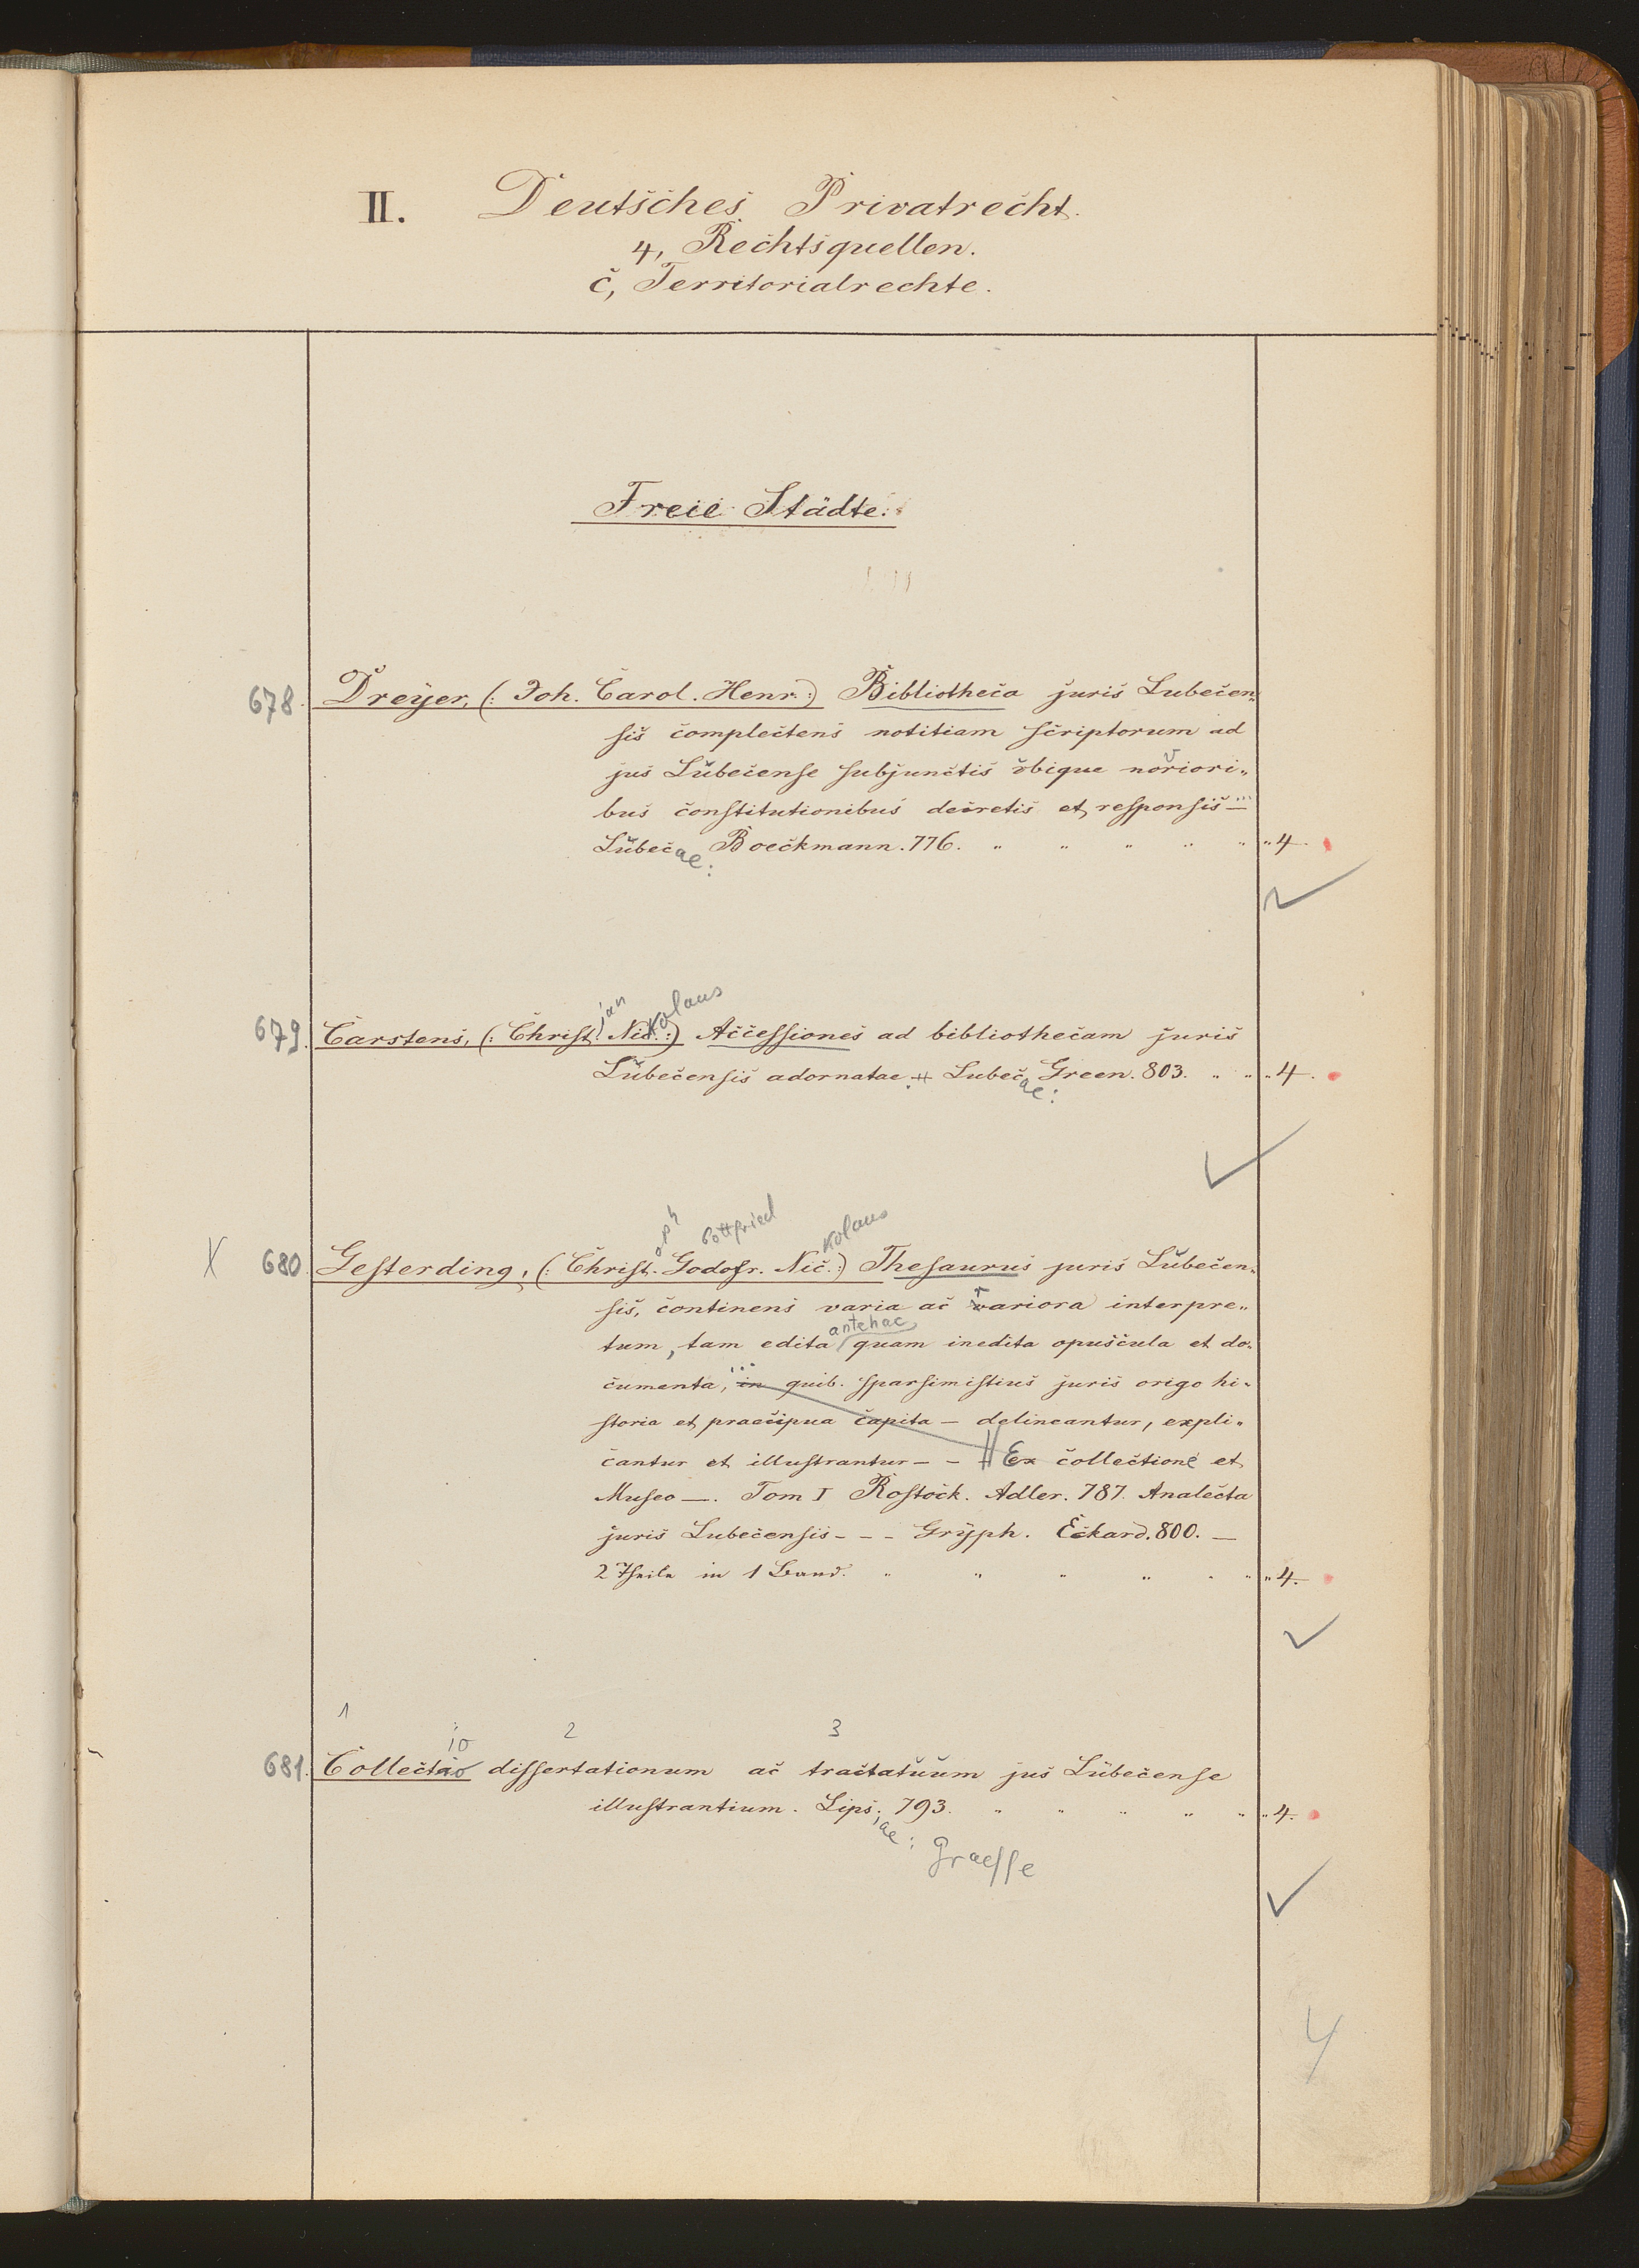 II. Deutsches Privatrecht.
4, Rechtsquellen.
c, Territorialrechte.
Freie Städte.
678. Dreyer, (: Joh. Carol. Henr. :) Bibliotheca juris Lubecen„
sis complectens notitiam scriptorum ad
jus Lŭbecense subjunctis ŭbique noviori„
bus constitutionibus decretis et responsis — ...
Lŭbecae: Boeckmann. 776. „ „ „ „ „ „ 4.
ian kolaus
679. Carstens, (: Christ. Nic. :) Accessiones ad bibliothecam juris
Lŭbecensis adornatae. # Lubecae: Green. 803. „ „ „ 4.
oph Gottfried kolaus
X 680. Gesterding, (: Christ. Godofr. Nic. :) Thesaurus juris Lŭbecen„
sis, continens varia ac rariora interpre„
antehac
tum, tam edita quam inedita opuscula et do„
cumenta, ... in quib. sparsim istius juris origo hi„
storia et praecipua capita — delineantur, expli„
cantur et illustrantur — — # Ex collectione et
Museo —. Tom I Rostock. Adler. 787. Analecta
juris Lubecensis - - - Gryph. Eckard. 800. —
2 Theile in 1 Band. „ „ „ „ „ „ „ 4.
1 2 3
io
681. Collectao dissertationum ac tractatŭŭm jus Lŭbecense
illustrantium. Lips. 793. „ „ „ „ „ „ 4.
iae: Graeffe
4